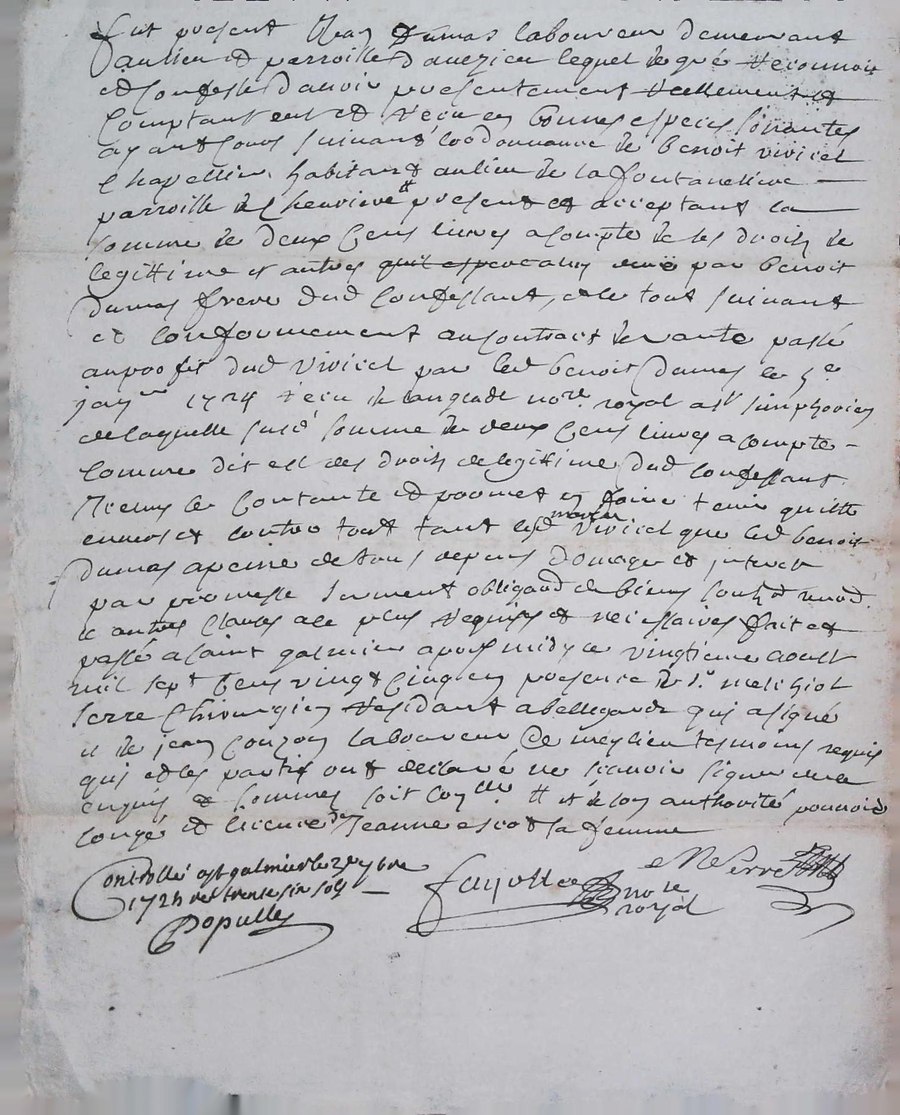 fut present Jean Dumas laboureur demeurant
au lieu et parroisse davezieu lequel de gré reconnoit
et confesse d'avoir presentement reellement et
comptant eut et receu en bonnes especes sonantes
ayant cours suivant l'ordonnance de benoit viricel
chapellier habitant au lieu de la fontaneliere
parroisse de Chevrieres # present et acceptant la
somme de deux cens livres a compte de ses droits de
legittime et autres par benoit
dumas frere dud confessant, et le tout suivant
et conformement au contract de vante passé
au profit dud viricel par led benoit Dumas le
janvier 1724 receu de langlade nore royal a st simphorien
de laquelle susd somme de deux cens livres a compte
comme dit est des droits de legittime dud confessant
se contante et promet en faire tenir quitte
envers et contre tout tant led viricel que led benoit
dumas a peine de tous depens domages et interets
par promesse serment obligaon de biens soubz renon
et autres clauses a ce plus requises et necessaires fait et
passé a saint galmier apres midy ce vingtieme aoust
mil sept cens vingt cinq en presence de sr melchiol
serre Chirurgien residant a bellegarde qui a signé
et de jean couzon laboureur de meylieu tesmoins requis
qui et les parties ont declaré ne scavoir signer de ce
enquis et sommés soit con.lle # et de son authorité pouvoir
congé et licence Jeanne escot sa femme
Controllé a st galmier le 2e 7bre
1725 rec trente six sols
Populle
fayolle nore
royal
M Serre